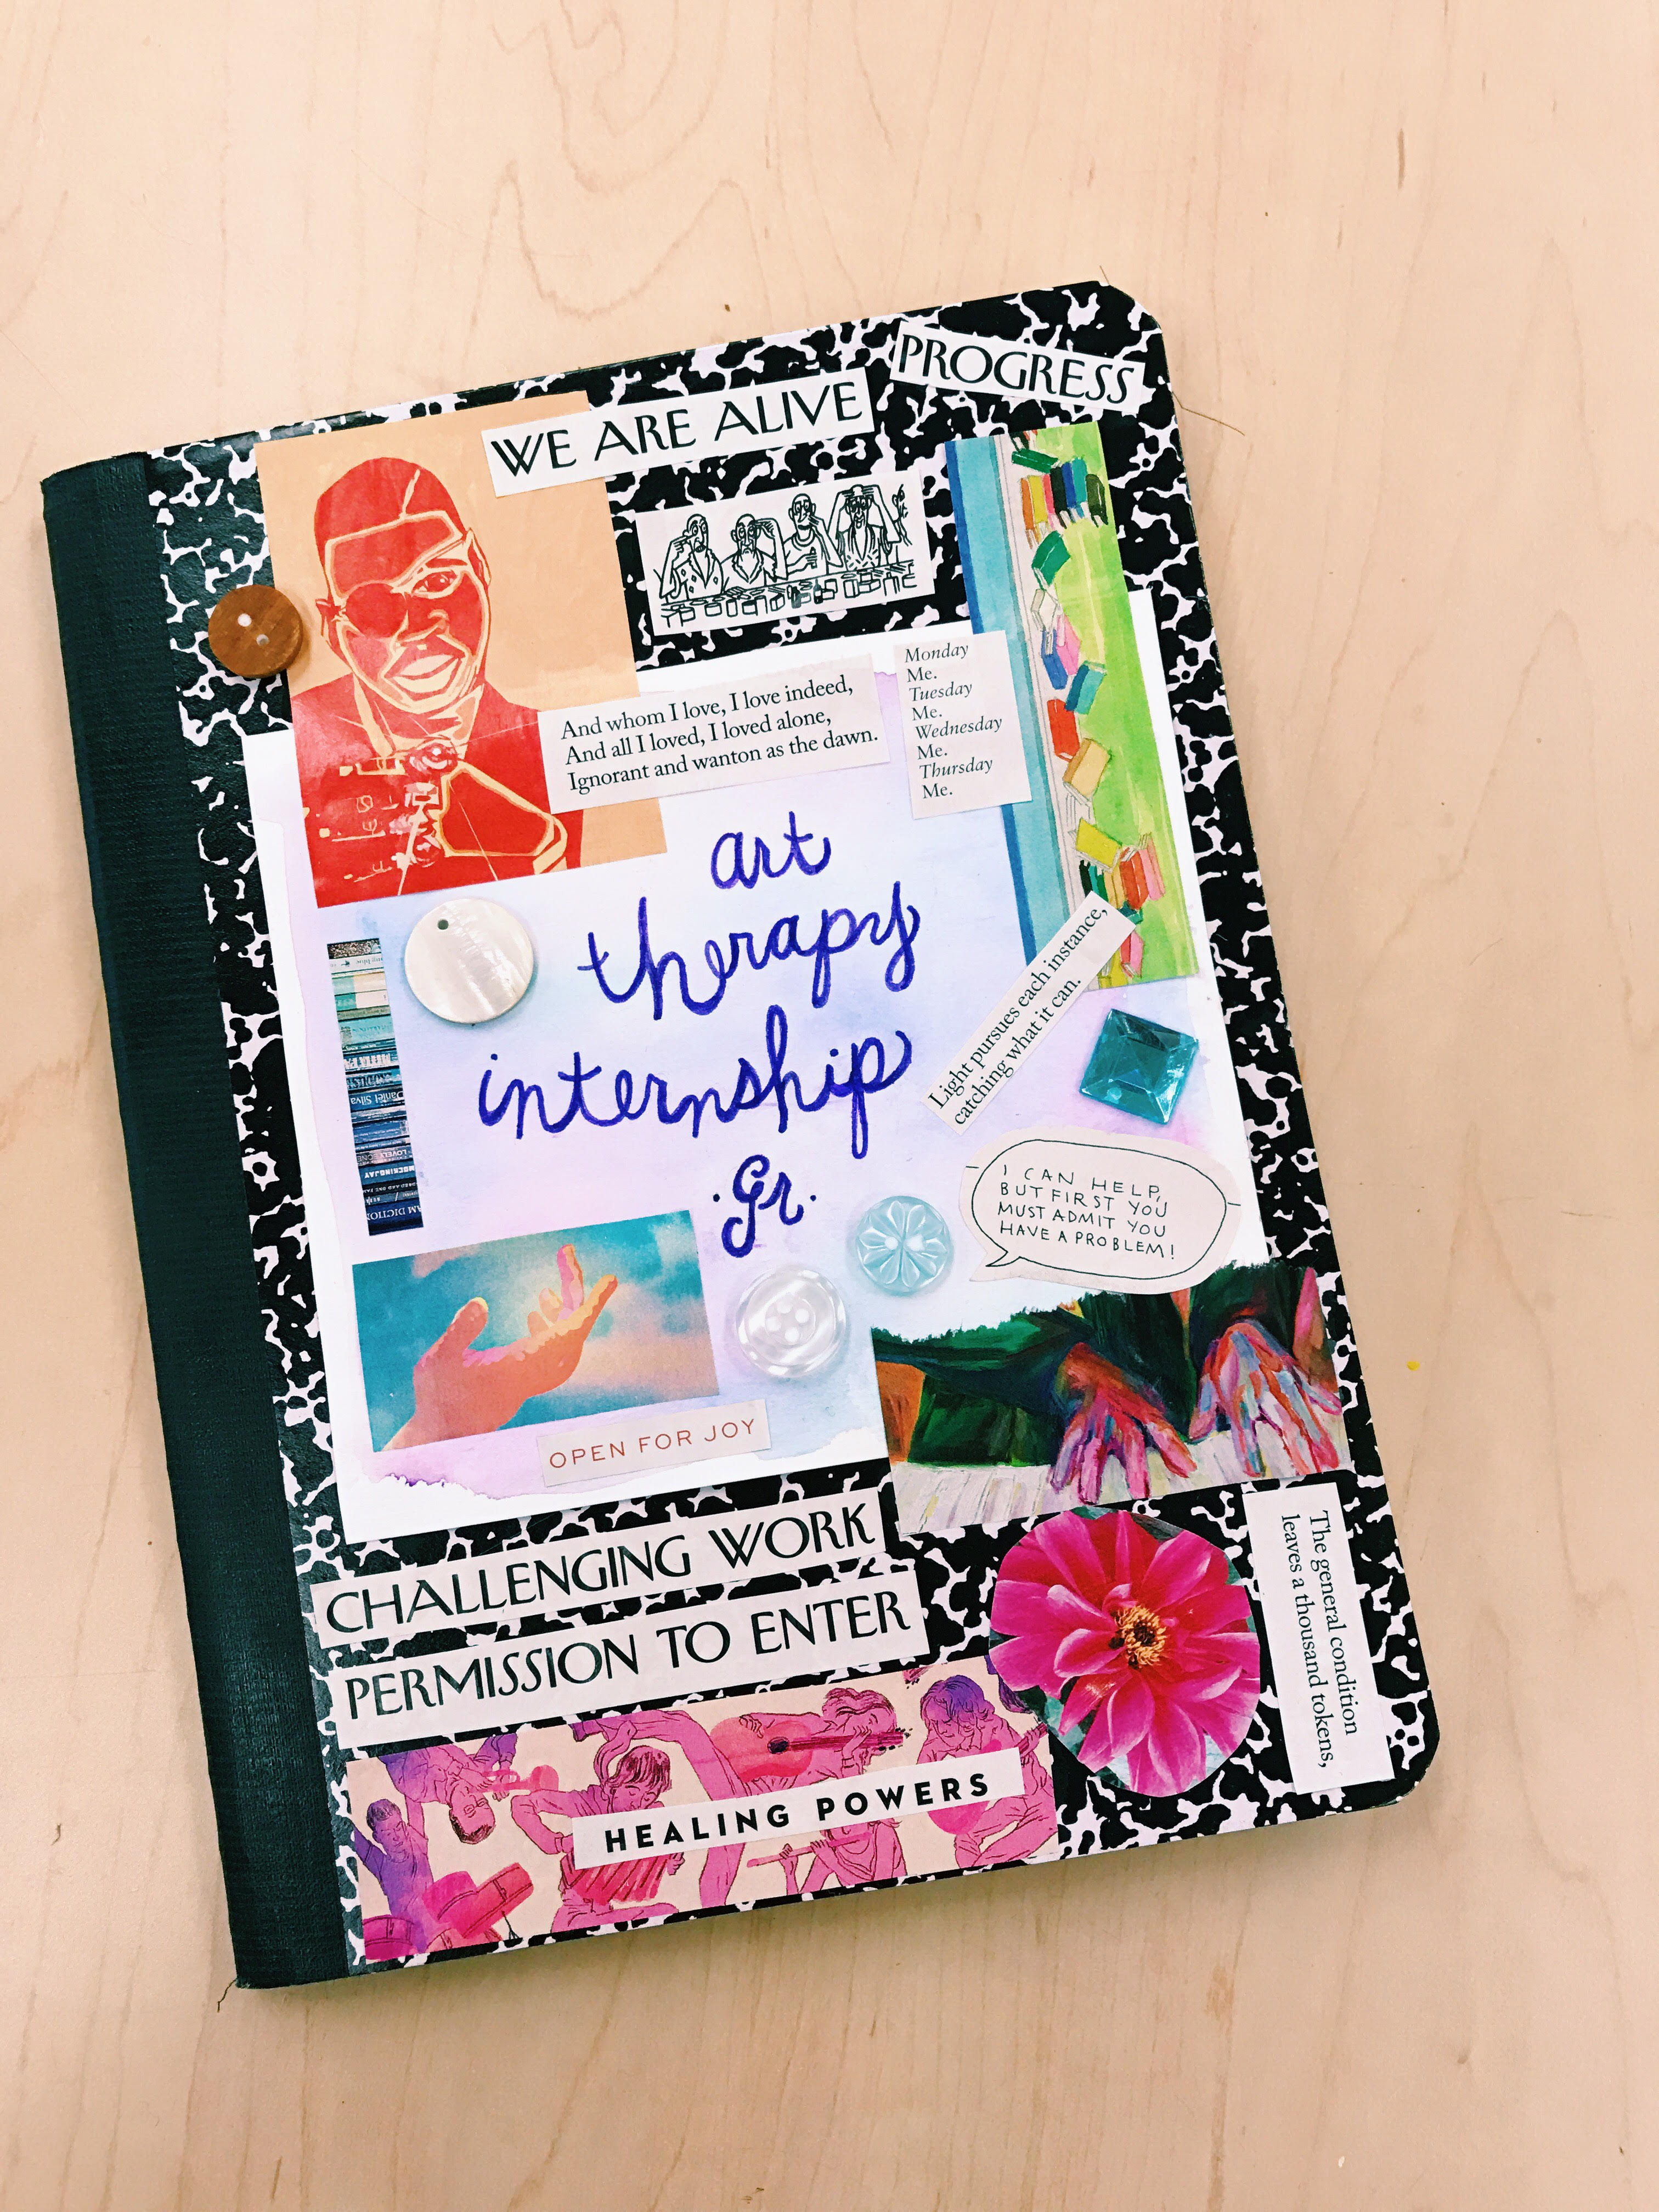 PROGRESS
WE ARE ALIVE
And whom I love, I love indeed,
And all I loved, I loved alone,
Ignorant and wanton as the dawn.
Monday
Me.
Tuesday
Me.
Wednesday
Me.
Thursday
Me.
art
therapy
internship
·gr.
Light pursues each instance,
catching what it can.
Daniel Silva
MOCKINGJAY
I CAN HELP,
BUT FIRST YOU
MUST ADMIT YOU
HAVE A PROBLEM!
OPEN FOR JOY
CHALLENGING WORK
PERMISSION TO ENTER
The general condition
leaves a thousand tokens,
HEALING POWERS